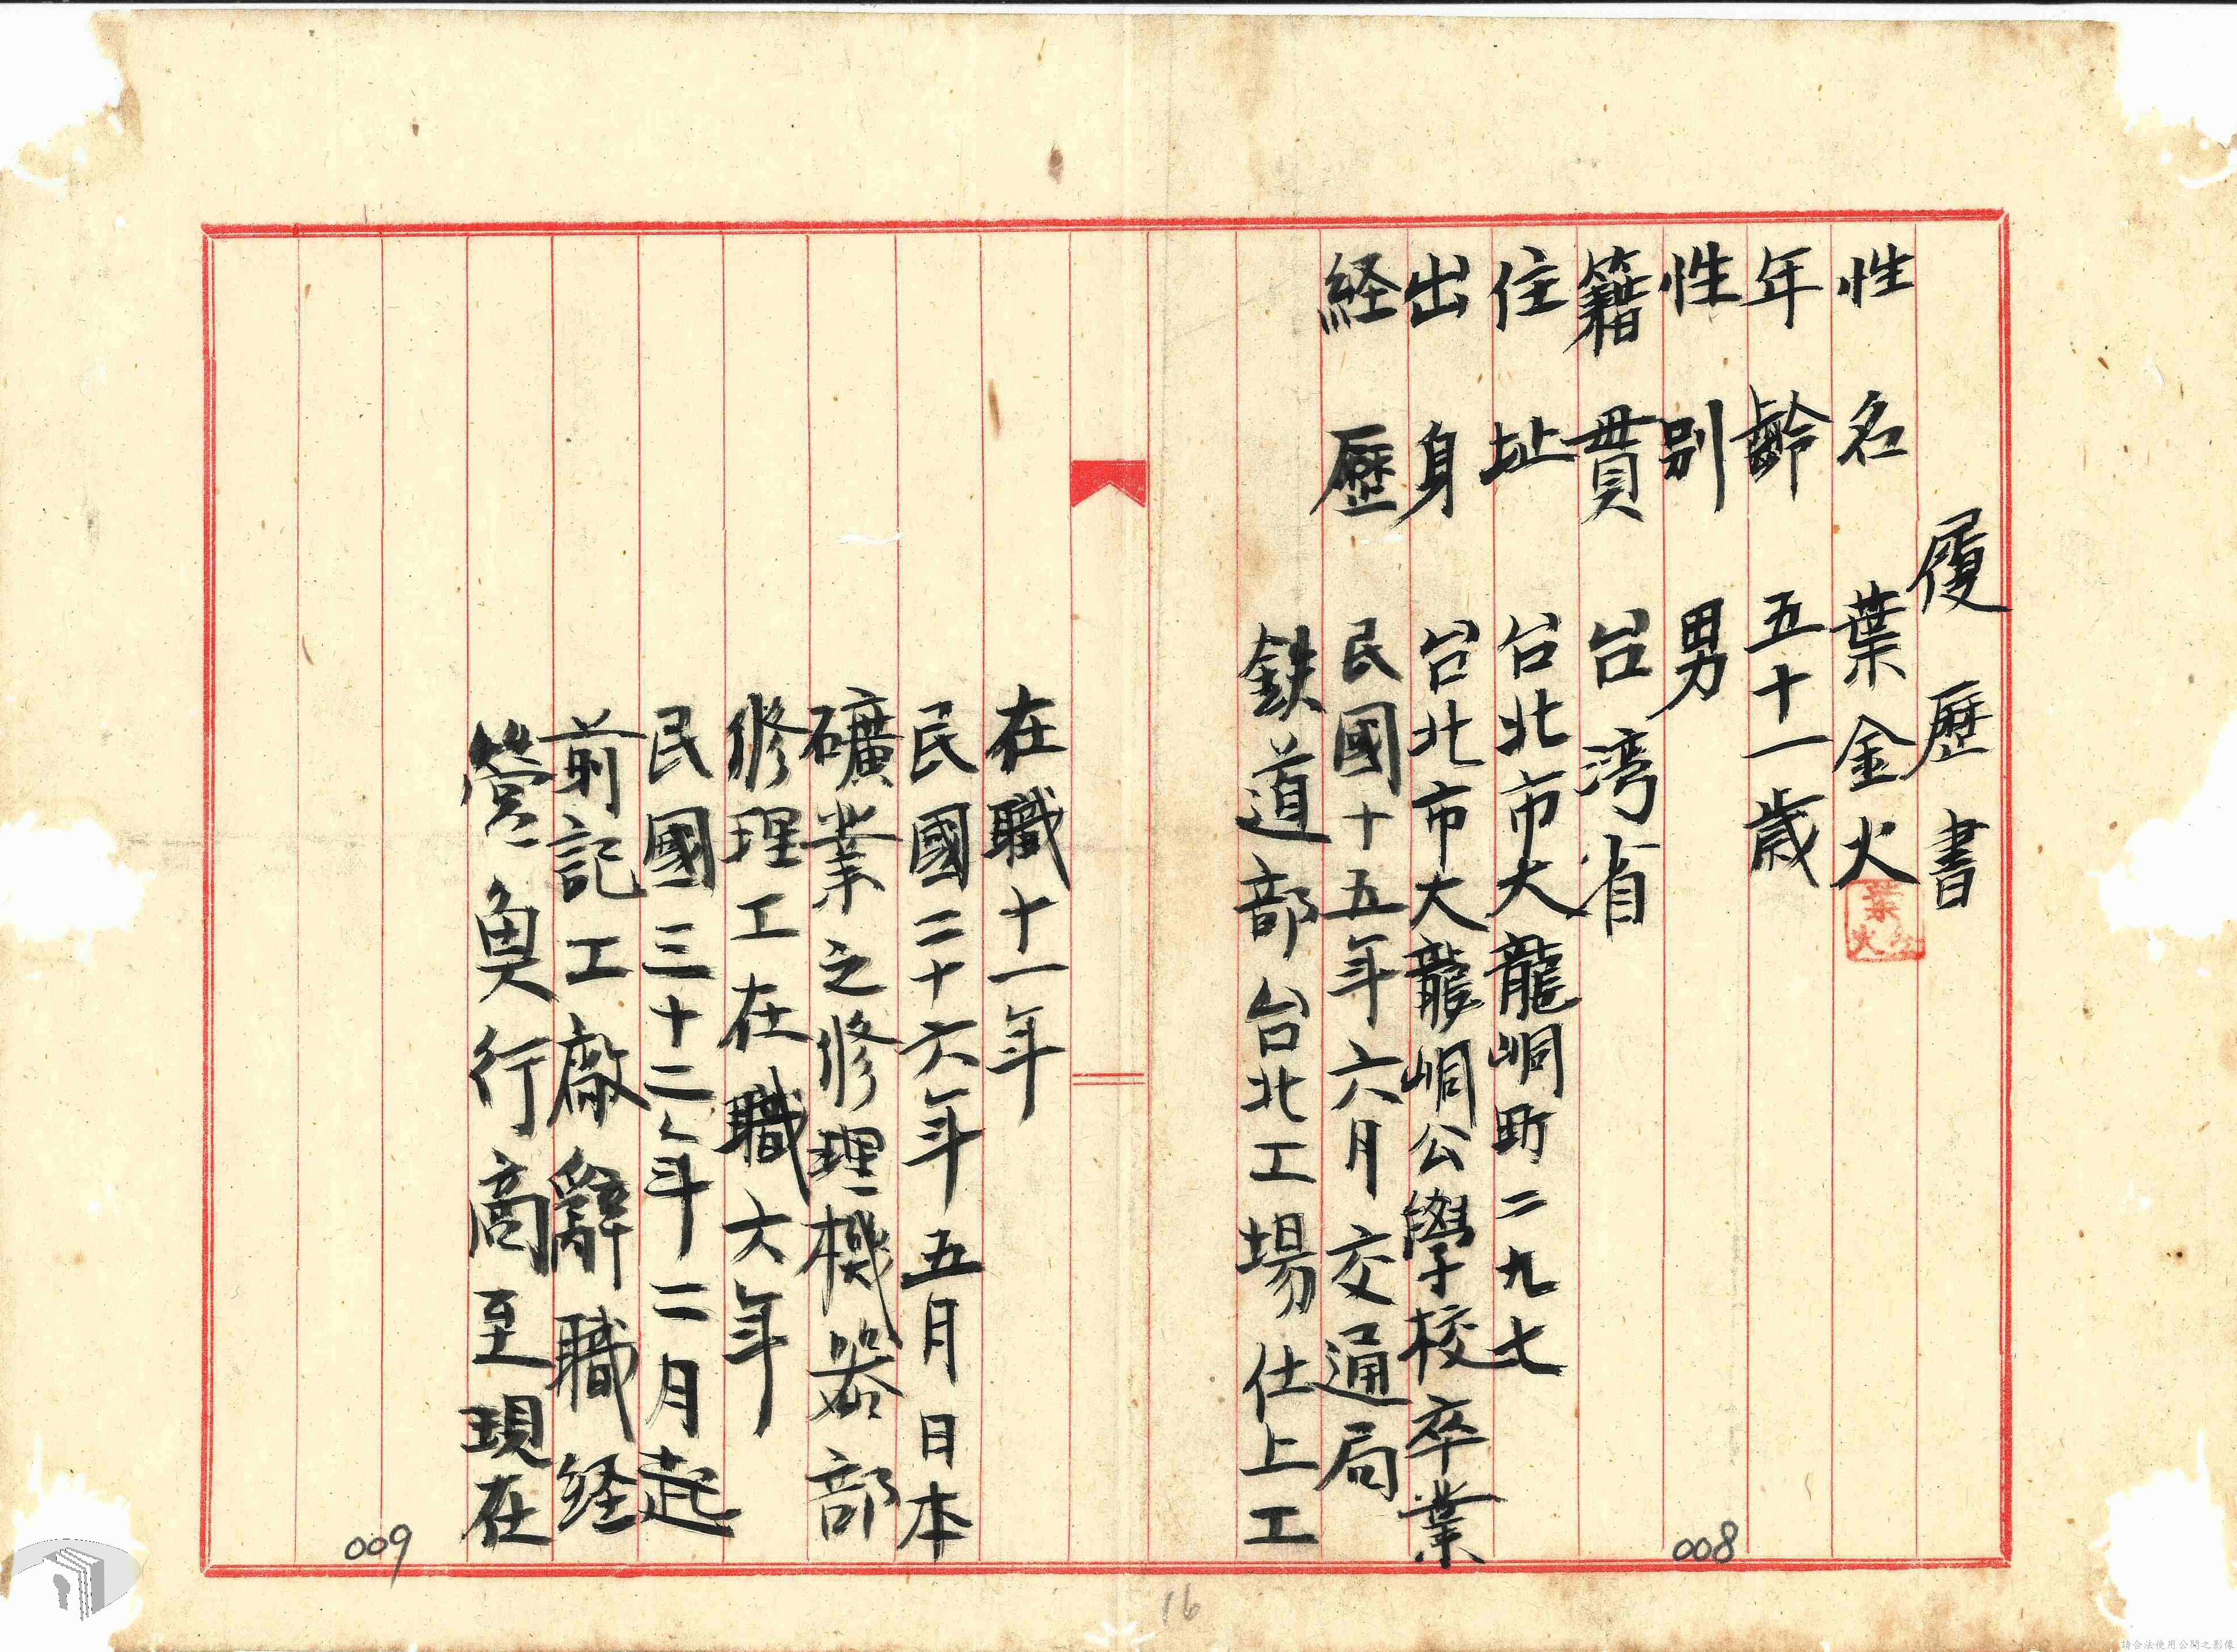 履歷書
性名 葉金火
葉金火
年齡 五十一歲
性別 男
籍貫 台湾省
住址 台北市大龍峒町二九七
出身 台北市大龍峒公學校卒業
経歷 民國十五年六月交通局
鉄道部台北工場仕上工
在職十一年
民國二十六年五月日本
礦業之修理機器部
修理工在職六年
民國三十二年二月起
前記工廠辭職経
營魚行商至現在
008
009
16
請合法使用公開之影像